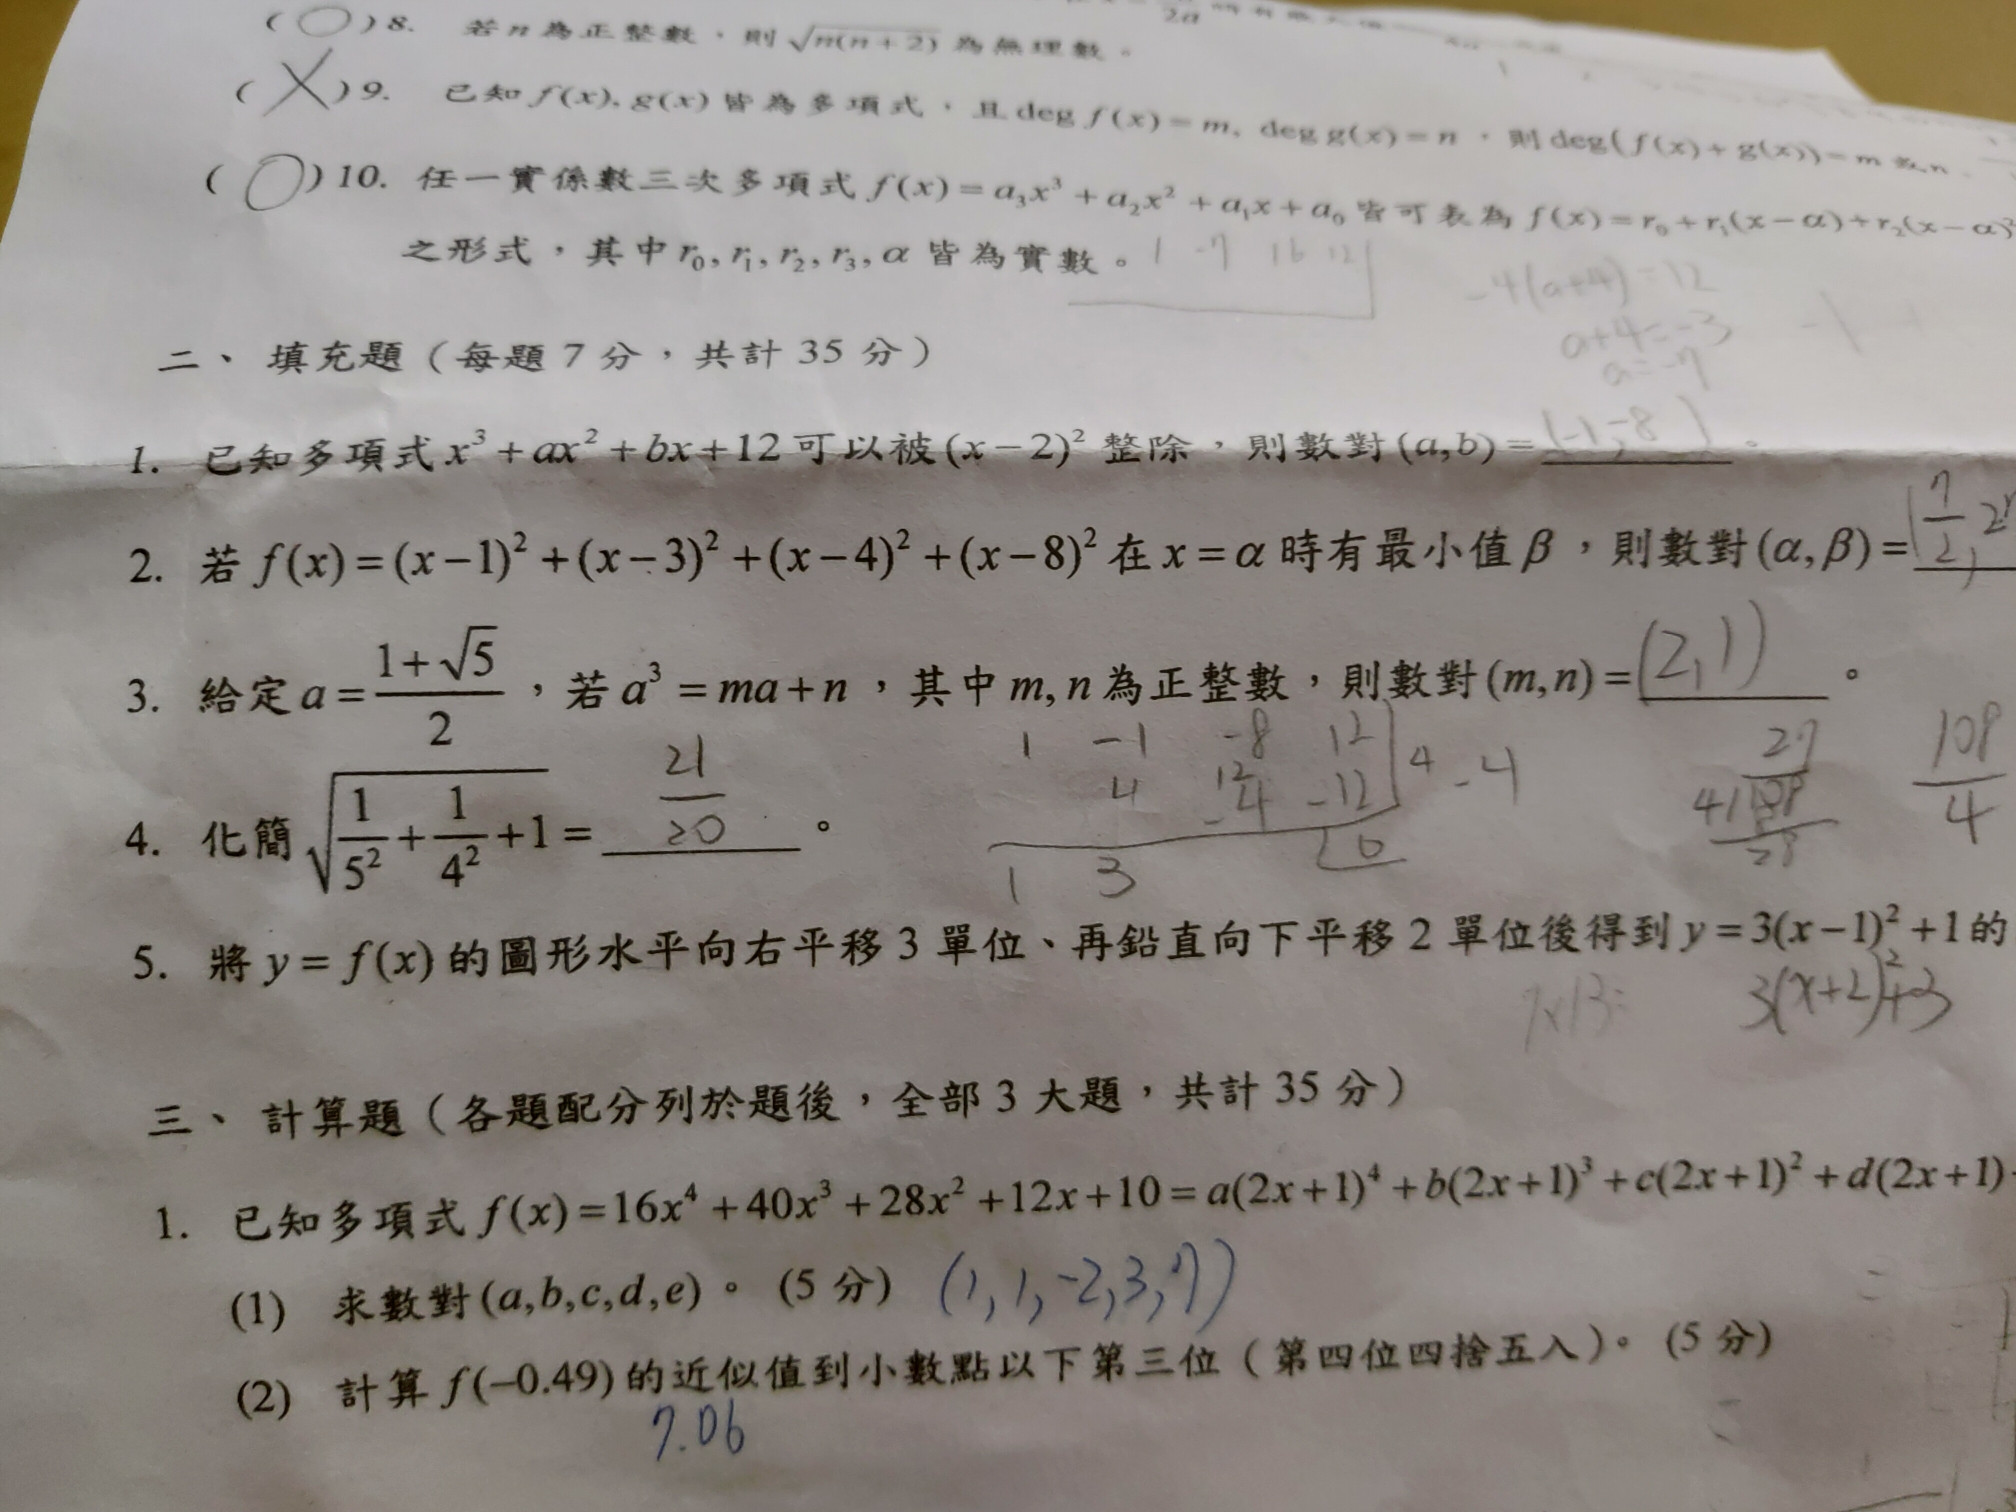 (○)8. 若n為正整數,則√n(n+2) 為無理數。
(X)9. 已知f(x), g(x)皆為多項式,且deg f(x)=m, deg g(x)=n,則deg(f(x)+g(x))=m 或 n。
(○)10. 任一實係數三次多項式 f(x)=a₃x³+a₂x²+a₁x+a₀ 皆可表為 f(x)=r₀+r₁(x−α)+r₂(x−α)²
之形式,其中r₀, r₁, r₂, r₃, α 皆為實數。
1 -7 16 12
-4(a+4)=12
a+4=-3
a=-7
二、 填充題(每題 7 分,共計 35 分)
1. 已知多項式x³+ax²+bx+12可以被(x−2)² 整除,則數對(a,b)=(-1,-8)。
2. 若 f(x)=(x−1)²+(x−3)²+(x−4)²+(x−8)² 在 x=α 時有最小值 β,則數對(α,β)=(7/2,
3. 給定a=(1+√5)/2,若a³=ma+n,其中m, n為正整數,則數對(m,n)=(2,1)。
4. 化簡√(1/5²+1/4²+1)=21/20。
1 -1 -8 12 4 -4
4 12 -4 -12
1 3 0
27
108/4
28
5. 將y=f(x)的圖形水平向右平移3單位、再鉛直向下平移2單位後得到y=3(x−1)²+1的
3(x+2)²+3
三、 計算題(各題配分列於題後,全部 3 大題,共計 35 分)
1. 已知多項式 f(x)=16x⁴+40x³+28x²+12x+10=a(2x+1)⁴+b(2x+1)³+c(2x+1)²+d(2x+1)
(1) 求數對(a,b,c,d,e)。(5 分) (1,1,-2,3,7)
(2) 計算 f(−0.49)的近似值到小數點以下第三位(第四位四捨五入)。(5 分)
7.06